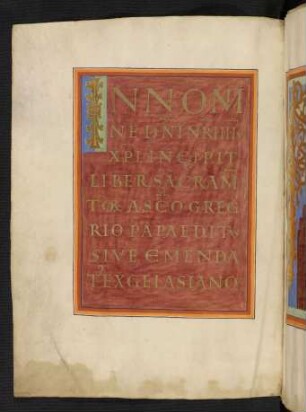 IN NOMI
NE DNI NRI IHV
XPI INCIPIT
LIBER SACRAM
TOR A SCO GREG
RIO PAPA EDITVS
SIVE EMENDA
T EX GELASIANO